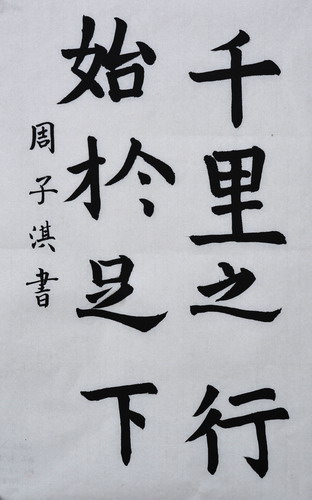 千里之行
始於足下
周子淇書